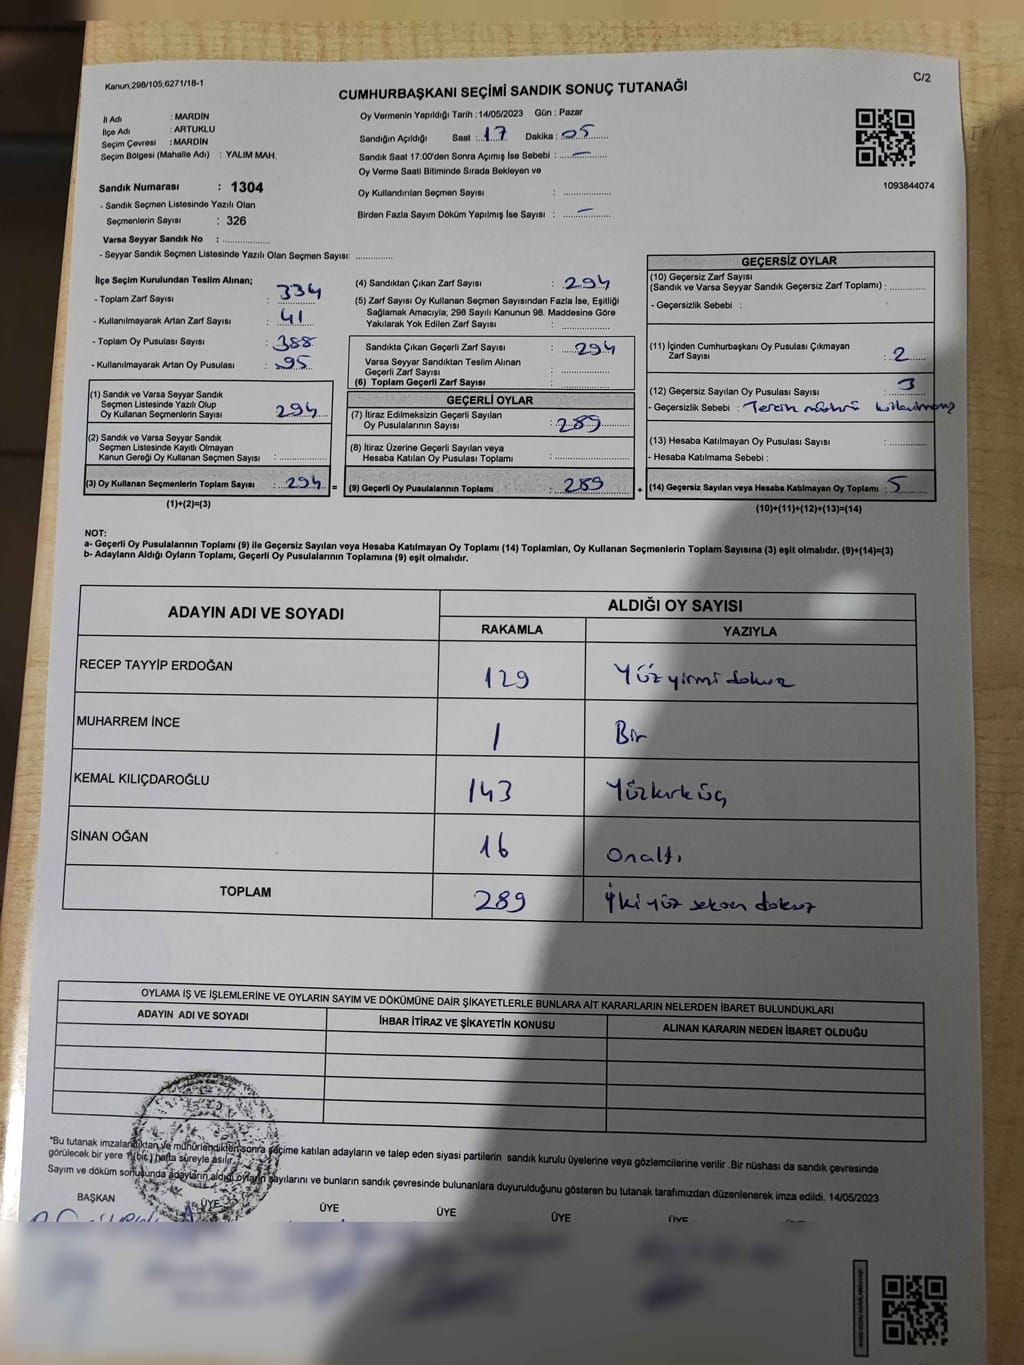 Kanun,298/105,6271/18-1
C/2
CUMHURBAŞKANI SEÇİMİ SANDIK SONUÇ TUTANAĞI
İl Adı : MARDİN
İlçe Adı : ARTUKLU
Seçim Çevresi : MARDİN
Seçim Bölgesi (Mahalle Adı) : YALIM MAH.
Sandık Numarası : 1304
- Sandık Seçmen Listesinde Yazılı Olan
Seçmenlerin Sayısı : 326
Varsa Seyyar Sandık No : ..................
- Seyyar Sandık Seçmen Listesinde Yazılı Olan Seçmen Sayısı: .............
Oy Vermenin Yapıldığı Tarih : 14/05/2023 Gün : Pazar
Sandığın Açıldığı Saat : 17 Dakika : 05
Sandık Saat 17:00'den Sonra Açımış İse Sebebi : —
Oy Verme Saati Bitiminde Sırada Bekleyen ve
Oy Kullandırılan Seçmen Sayısı : ..............
Birden Fazla Sayım Döküm Yapılmış İse Sayısı : —
1093844074
İlçe Seçim Kurulundan Teslim Alınan;
- Toplam Zarf Sayısı : 334
- Kullanılmayarak Artan Zarf Sayısı : 41
- Toplam Oy Pusulası Sayısı : 388
- Kullanılmayarak Artan Oy Pusulası : 95
(1) Sandık ve Varsa Seyyar Sandık
Seçmen Listesinde Yazılı Olup
Oy Kullanan Seçmenlerin Sayısı : 294
(2) Sandık ve Varsa Seyyar Sandık
Seçmen Listesinde Kayıtlı Olmayan
Kanun Gereği Oy Kullanan Seçmen Sayısı : .............
(3) Oy Kullanan Seçmenlerin Toplam Sayısı : 294 =
(1)+(2)=(3)
(4) Sandıktan Çıkan Zarf Sayısı : 294
(5) Zarf Sayısı Oy Kullanan Seçmen Sayısından Fazla İse, Eşitliği
Sağlamak Amacıyla; 298 Sayılı Kanunun 98. Maddesine Göre
Yakılarak Yok Edilen Zarf Sayısı : .............
Sandıkta Çıkan Geçerli Zarf Sayısı : 294
Varsa Seyyar Sandıktan Teslim Alınan
Geçerli Zarf Sayısı : .............
(6) Toplam Geçerli Zarf Sayısı : .............
GEÇERLİ OYLAR
(7) İtiraz Edilmeksizin Geçerli Sayılan
Oy Pusulalarının Sayısı : 289
(8) İtiraz Üzerine Geçerli Sayılan veya
Hesaba Katılan Oy Pusulası Toplamı : .............
(9) Geçerli Oy Pusulalarının Toplamı : 289 +
GEÇERSİZ OYLAR
(10) Geçersiz Zarf Sayısı
(Sandık ve Varsa Seyyar Sandık Geçersiz Zarf Toplamı) : .........
- Geçersizlik Sebebi :
(11) İçinden Cumhurbaşkanı Oy Pusulası Çıkmayan
Zarf Sayısı : 2
(12) Geçersiz Sayılan Oy Pusulası Sayısı : 3
- Geçersizlik Sebebi : Tercih mührü
(13) Hesaba Katılmayan Oy Pusulası Sayısı : .........
- Hesaba Katılmama Sebebi :
(14) Geçersiz Sayılan veya Hesaba Katılmayan Oy Toplamı : 5
(10)+(11)+(12)+(13)=(14)
NOT:
a- Geçerli Oy Pusulalarının Toplamı (9) ile Geçersiz Sayılan veya Hesaba Katılmayan Oy Toplamı (14) Toplamları, Oy Kullanan Seçmenlerin Toplam Sayısına (3) eşit olmalıdır. (9)+(14)=(3)
b- Adayların Aldığı Oyların Toplamı, Geçerli Oy Pusulalarının Toplamına (9) eşit olmalıdır.
ADAYIN ADI VE SOYADI
ALDIĞI OY SAYISI
RAKAMLA YAZIYLA
RECEP TAYYİP ERDOĞAN 129 Yüz yirmi dokuz
MUHARREM İNCE 1 Bir
KEMAL KILIÇDAROĞLU 143 Yüzkırküç
SİNAN OĞAN 16 Onaltı
TOPLAM 289 İkiyüz seksen dokuz
OYLAMA İŞ VE İŞLEMLERİNE VE OYLARIN SAYIM VE DÖKÜMÜNE DAİR ŞİKAYETLERLE BUNLARA AİT KARARLARIN NELERDEN İBARET BULUNDUKLARI
ADAYIN ADI VE SOYADI İHBAR İTİRAZ VE ŞİKAYETİN KONUSU ALINAN KARARIN NEDEN İBARET OLDUĞU
"Bu tutanak imzalandıktan ve mühürlendikten sonra seçime katılan adayların ve talep eden siyasi partilerin sandık kurulu üyelerine veya gözlemcilerine verilir .Bir nüshası da sandık çevresinde
görülecek bir yere 1 (bir) hafta süreyle asılır."
Sayım ve döküm sonuşunda adayların aldığı oyların sayılarını ve bunların sandık çevresinde bulunanlara duyurulduğunu gösteren bu tutanak tarafımızdan düzenlenerek imza edildi. 14/05/2023
BAŞKAN ÜYE ÜYE ÜYE ÜYE ÜYE ÜYE